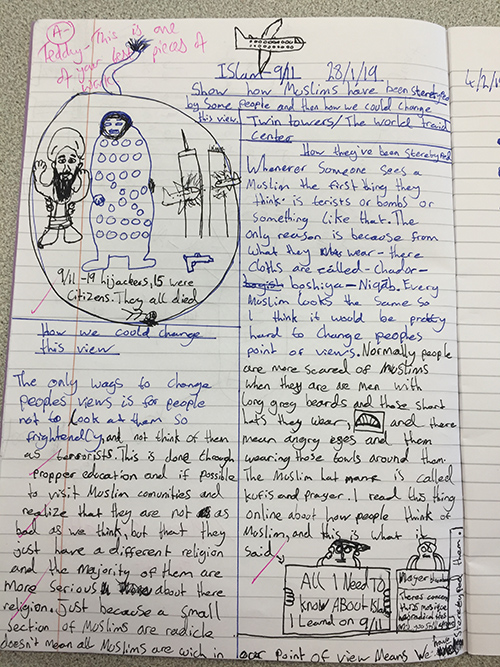 A-
Teddy - This is one
of your best pieces of
work!
ISlam - 9/11 28/1/19
Show how Muslims have been
by Some people and then how we could change
this view.
Twin towers/The World
Center
9/11-19 hijackers, 15 were
Citizens. They all died
How we could change
this view
The only ways to change
peoples views is for people
not to look at them so
and not think of them
as terrorists. This is done through
propper education and if possible
to visit Muslim comunities and
realize that they are not as
bad as we think, but that they
just have a different religion
and the majority of them are
more serious about there
religion. Just because a small
section of Muslims are radicle
doesn't mean all Muslims are wich in
How they've been
Whenever Someone sees a
Muslim the first thing they
think is terists or bombs or
something like that. The
only reason is because from
what they wear - there
Cloths are called - chador -
boshiya - Niqab. Every
Muslim looks the same so
I think it would be pretty
hard to change peoples
point of views. Normally people
are more scared of Muslims
when they are men with
long grey beards and those short
hats they wear, and there
mean angry eyes and them
wearing those towls around them.
The Muslim hat is called
kufis and prayer. I read this thing
online about how people think of
Muslim, and this is what it
said
All I Need To
know About Islam
I Learned on 9/11
our Point of view Means We have
them.
4/2/1